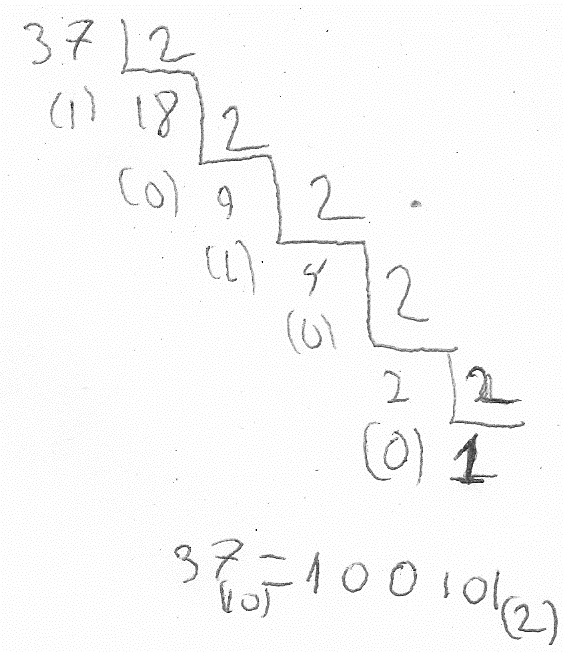 37 2
(1) 18 2
(0) 9 2
(1) 4 2
(0) 2 2
(0) 1
37(10)=100101(2)